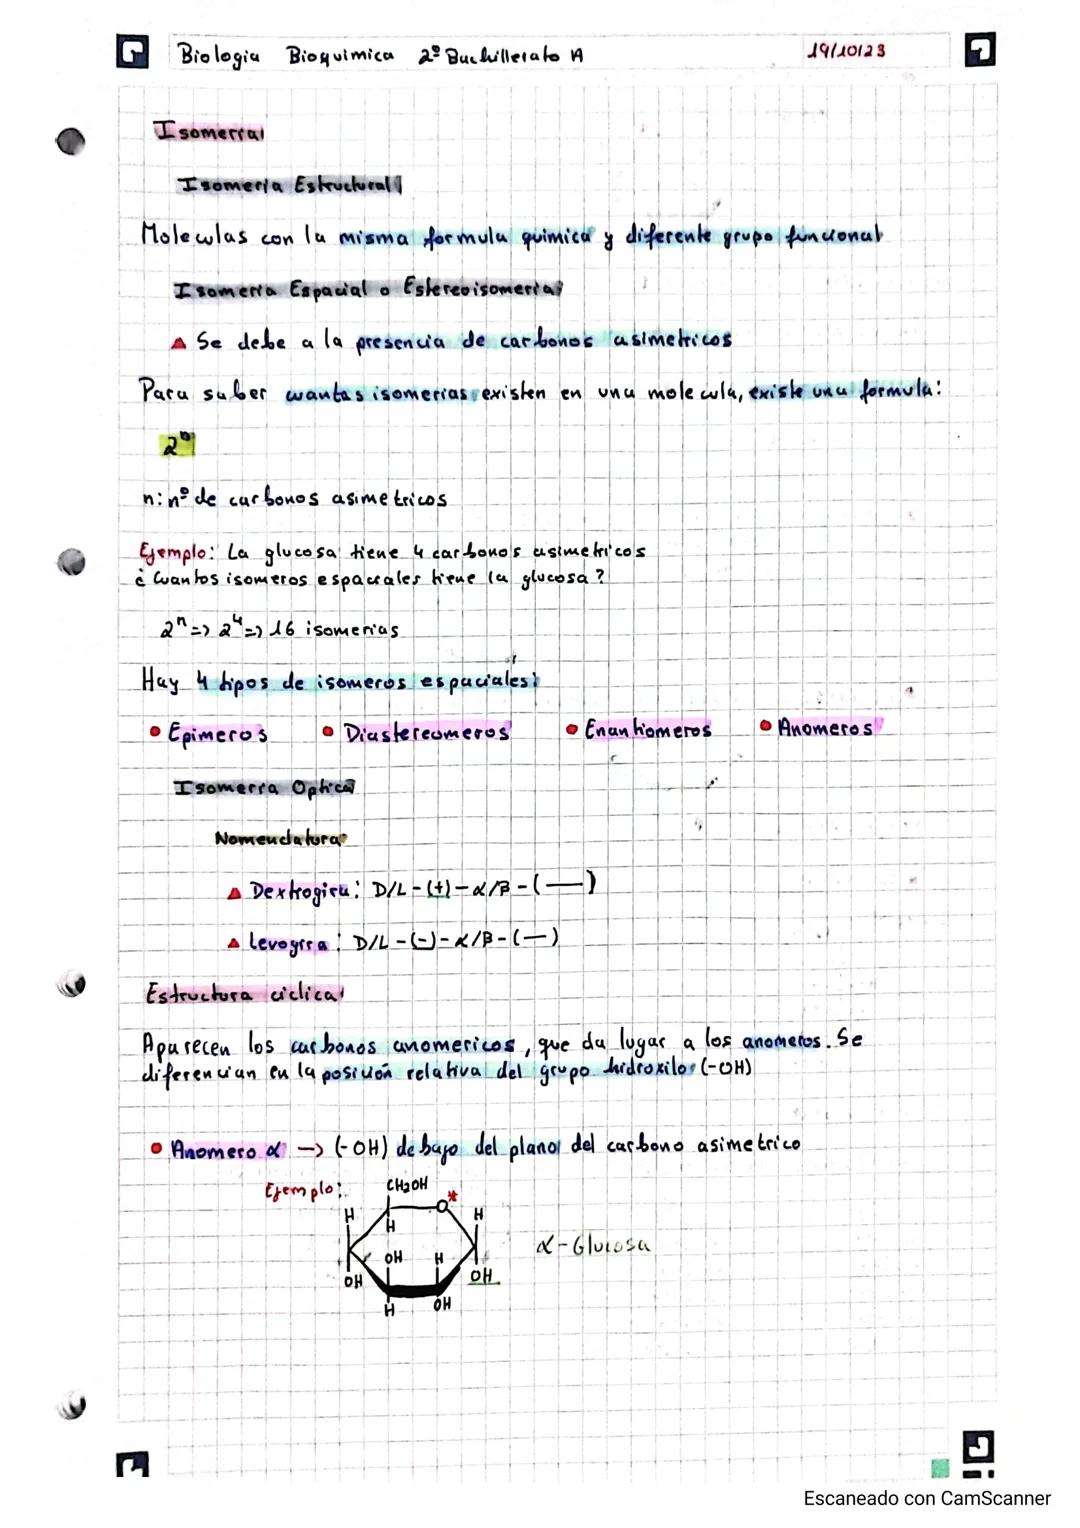 Biologia Bioquimica 2º Bachillerato A 19/10/23
Isomeria
Isomeria Estructural
Moleculas con la misma formula quimica y diferente grupo funcional
Isomeria Espacial o Estereoisomeria
Se debe a la presencia de carbonos asimetricos
Para saber cuantas isomerias existen en una molecula, existe una formula:
2ⁿ
n: nº de carbonos asimetricos
Ejemplo: La glucosa tiene 4 carbonos asimetricos
¿Cuantos isomeros espaciales tiene la glucosa?
2ⁿ => 2⁴ => 16 isomerias
Hay 4 tipos de isomeros espaciales:
• Epimeros • Diastereomeros • Enantiomeros • Anomeros
Isomeria Optica
Nomenclatura
Dextrogira: D/L-(+)-α/β-(—)
Levogira: D/L-(-)-α/β-(—)
Estructura ciclica
Aparecen los carbonos anomericos, que da lugar a los anomeros. Se
diferencian en la posición relativa del grupo hidroxilo (-OH)
• Anomero α -> (-OH) debajo del plano del carbono asimetrico
Ejemplo: CH2OH
O*
H H H
α-Glucosa
OH H
OH OH
H OH
Escaneado con CamScanner